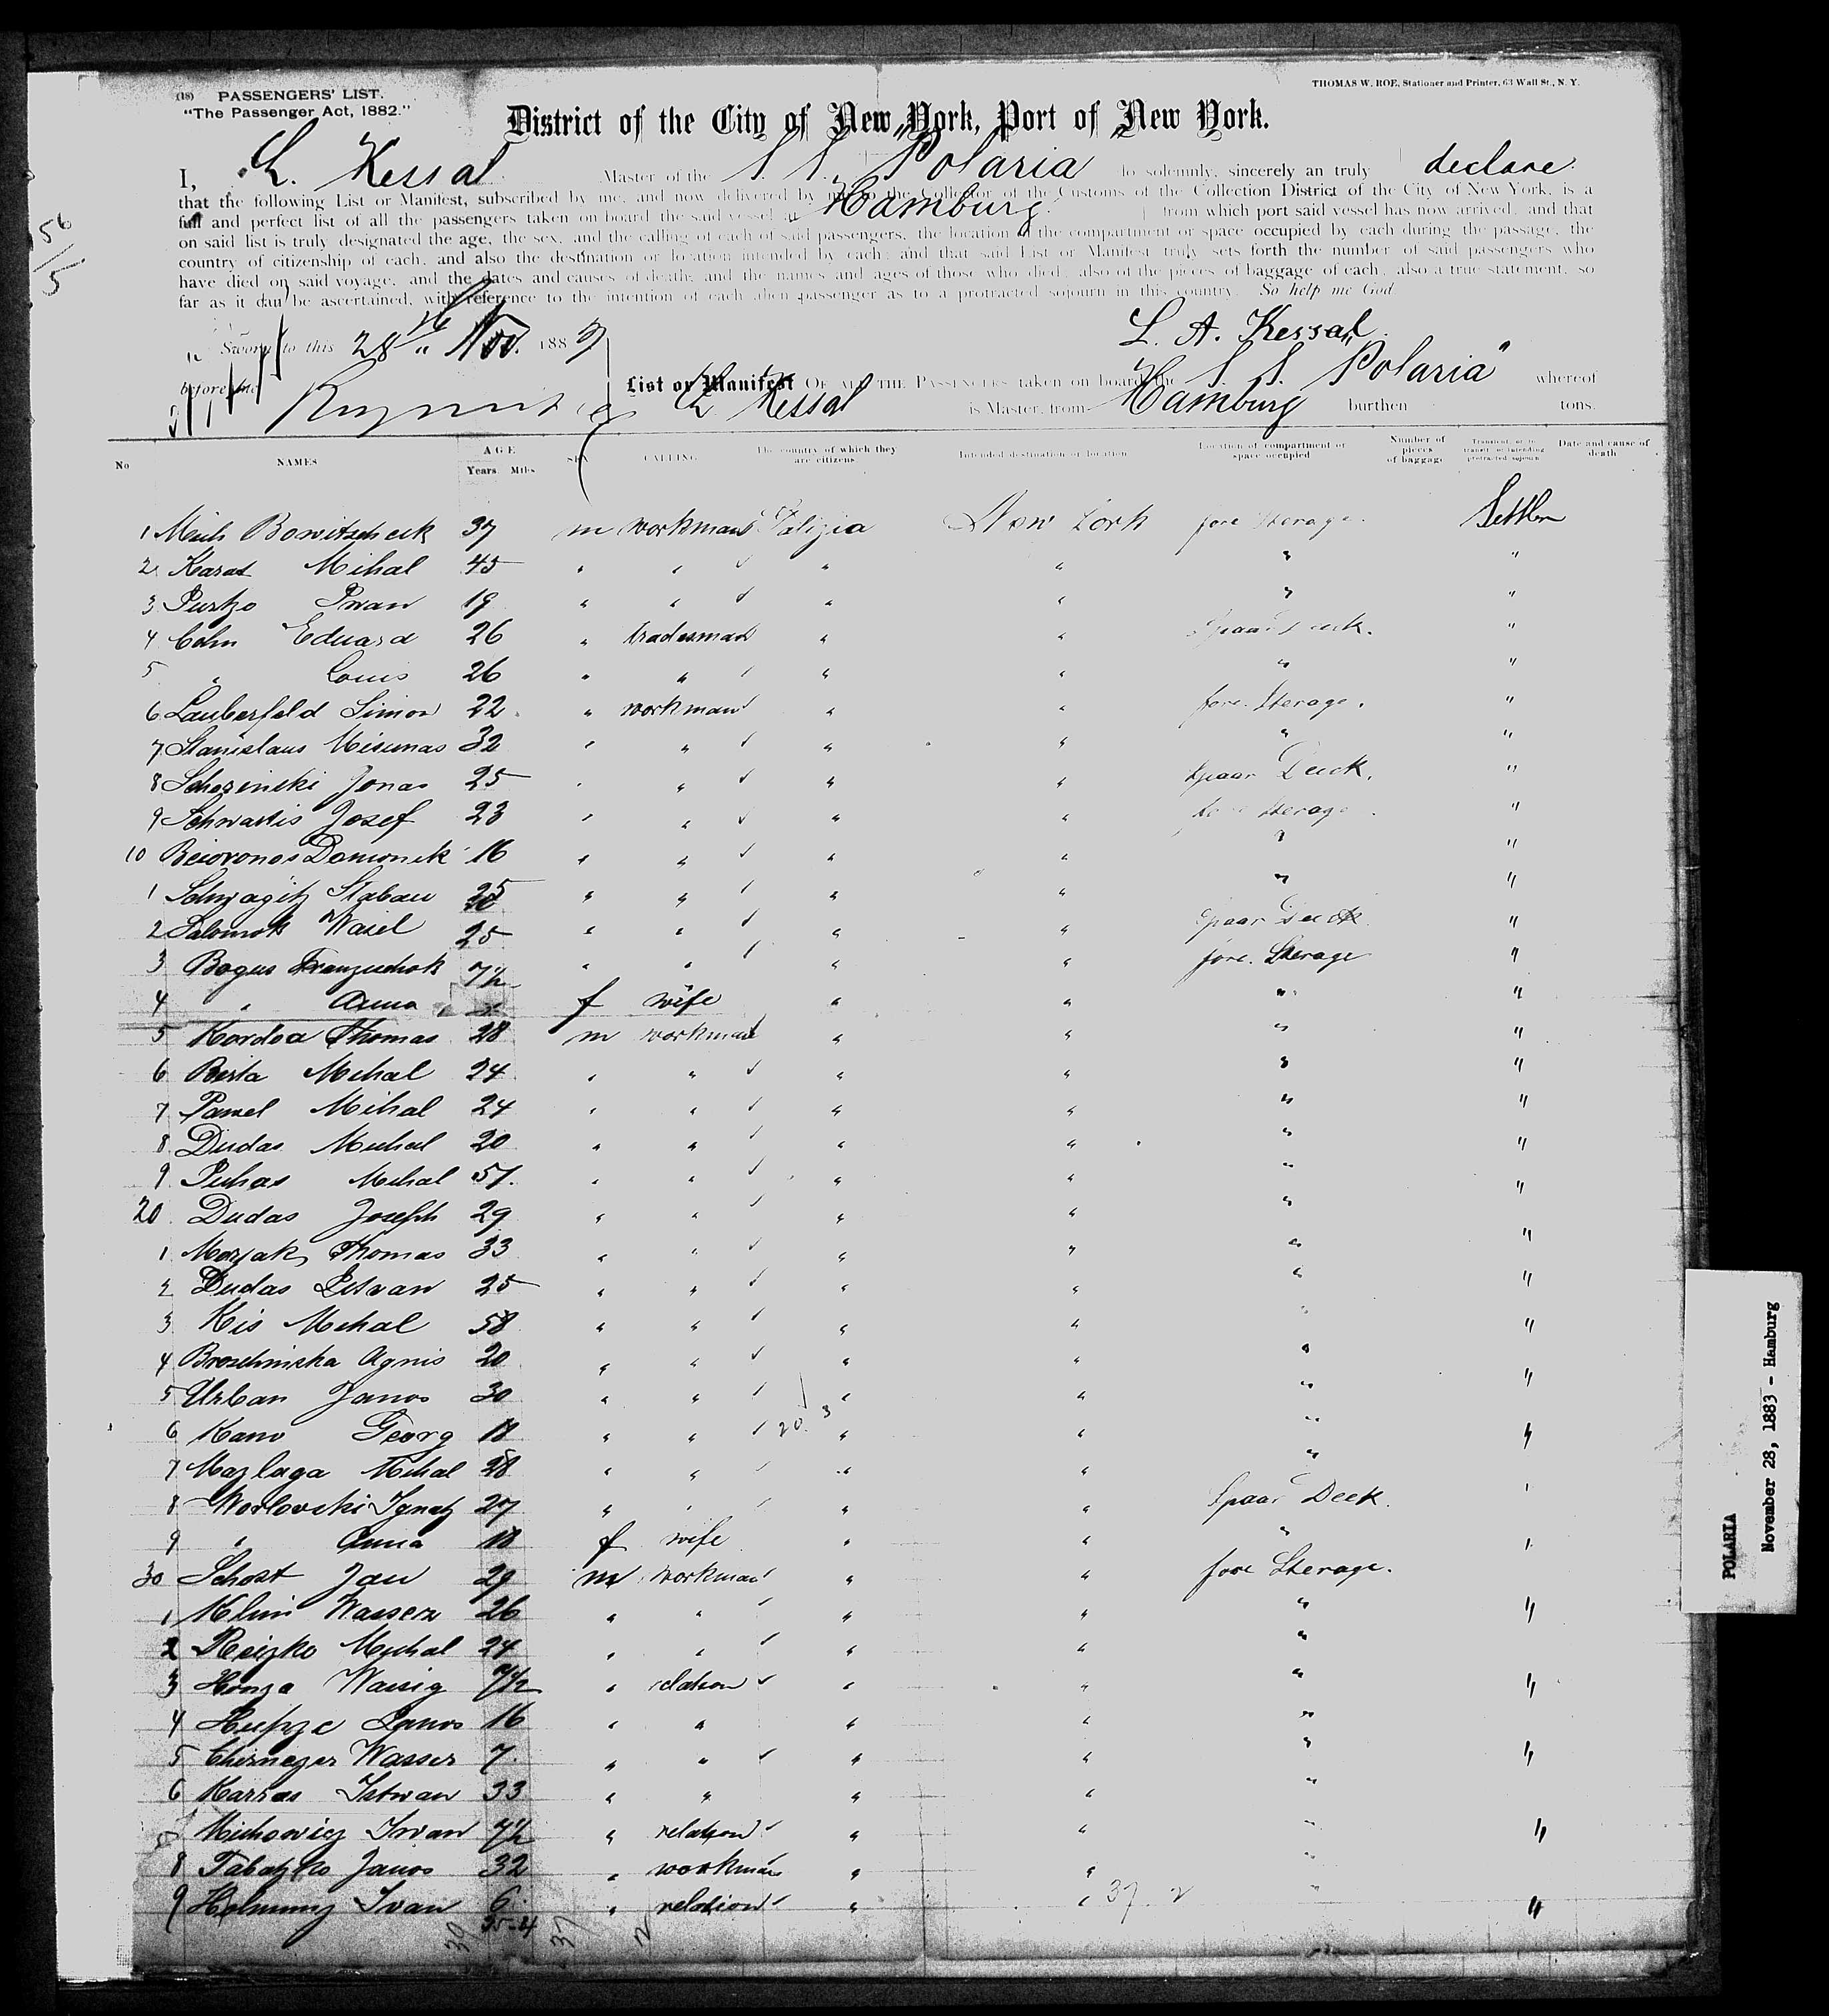 (18) PASSENGERS' LIST.
"The Passenger Act, 1882."
THOMAS W. ROE, Stationer and Printer, 63 Wall St., N. Y.
District of the City of New York, Port of New York.
I, L. Kessal Master of the S. S. "Polaria" do solemnly, sincerely an truly declare
that the following List or Manifest, subscribed by me, and now delivered by me to the Collector of the Customs of the Collection District of the City of New York, is a
full and perfect list of all the passengers taken on board the said vessel at Hamburg from which port said vessel has now arrived, and that
on said list is truly designated the age, the sex, and the calling of each of said passengers, the location of the compartment or space occupied by each during the passage, the
country of citizenship of each, and also the destination or location intended by each; and that said List or Manifest truly sets forth the number of said passengers who
have died on said voyage, and the dates and causes of death, and the names and ages of those who died; also of the pieces of baggage of each, also a true statement, so
far as it can be ascertained, with reference to the intention of each alien passenger as to a protracted sojourn in this country. So help me God.
L. A. Kessal
Sworn to this 28th Nov. 1883
before me
List or Manifest OF ALL THE PASSENGERS taken on board the S. S. "Polaria" whereof
L. Kessal is Master, from Hamburg burthen tons.
No NAMES AGE Years. Mths. SEX CALLING The country of which they are citizens Intended destination or location Location of compartment or space occupied Number of pieces of baggage Transient, or in transit, or intending protracted sojourn Date and cause of death
1 Mich Bowitscheck 37 m workman Galizia New York fore Sterage Settler
2 Karat Mihal 45 " " " " " "
3 Purtzo Iwan 19 " " " " " "
4 Cohn Eduard 26 " tradesman " " Spaar Deck. "
5 " Louis 26 " " " " " "
6 Lauberfeld Simon 22 " workman " " fore Sterage. "
7 Stanislaus Misunas 32 " " " " " "
8 Schesinski Jonas 25 " " " " Spaar Deck. "
9 Schwartis Josef 23 " " " " fore Sterage "
10 Beioronos Domonik 16 " " " " " "
1 Schwagitz Stabau 25 " " " " " "
2 Salomok Wasel 25 " " " " Spaar Deck "
3 Bogus Franzuchok 7½ " " " " fore. Sterage "
4 " Anna f wife " " " "
5 Kordoa Thomas 28 m workman " " " "
6 Besta Mehal 24 " " " " " "
7 Pawel Mihal 24 " " " " " "
8 Dudas Michal 20 " " " " " "
9 Puhas Mehal 51. " " " " " "
20 Dudas Joseph 29 " " " " "
1 Morjak Thomas 33 " " " " " "
2 Dudas Estvan 25 " " " " " "
3 Kis Mehal 58 " " " " "
4 Broschinska Agnis 20 " " " " "
5 Urban Janos 30 " " " " " "
6 Kano Georg 18 " " 20. 3 " " " "
7 Mazlaga Mihal 28 " " " " "
8 Worlovski Ignatz 27 " " " " Spaar Deck. "
9 " Anna 18 f wife " " " "
30 Schost Jan 29 m workman " " fore Sterage.
1 Klim Wassera 26 " " " " " "
2 Reizko Michal 24 " " " " "
3 Honza Wassig 7½ " relation " " " "
4 Hupze Janos 16 " " " " "
5 Chirnezer Wasser 7. " " " " " "
6 Karras Istwan 33 " " " " "
7 Michowicz Iwan 7½ " relation " " " "
8 Tabatzko Janos 32 " workman " " "
9 Holmunz Ivan 6. " relation " " 37. 2 " "
39 37 2
POLARIA
November 28, 1883 - Hamburg